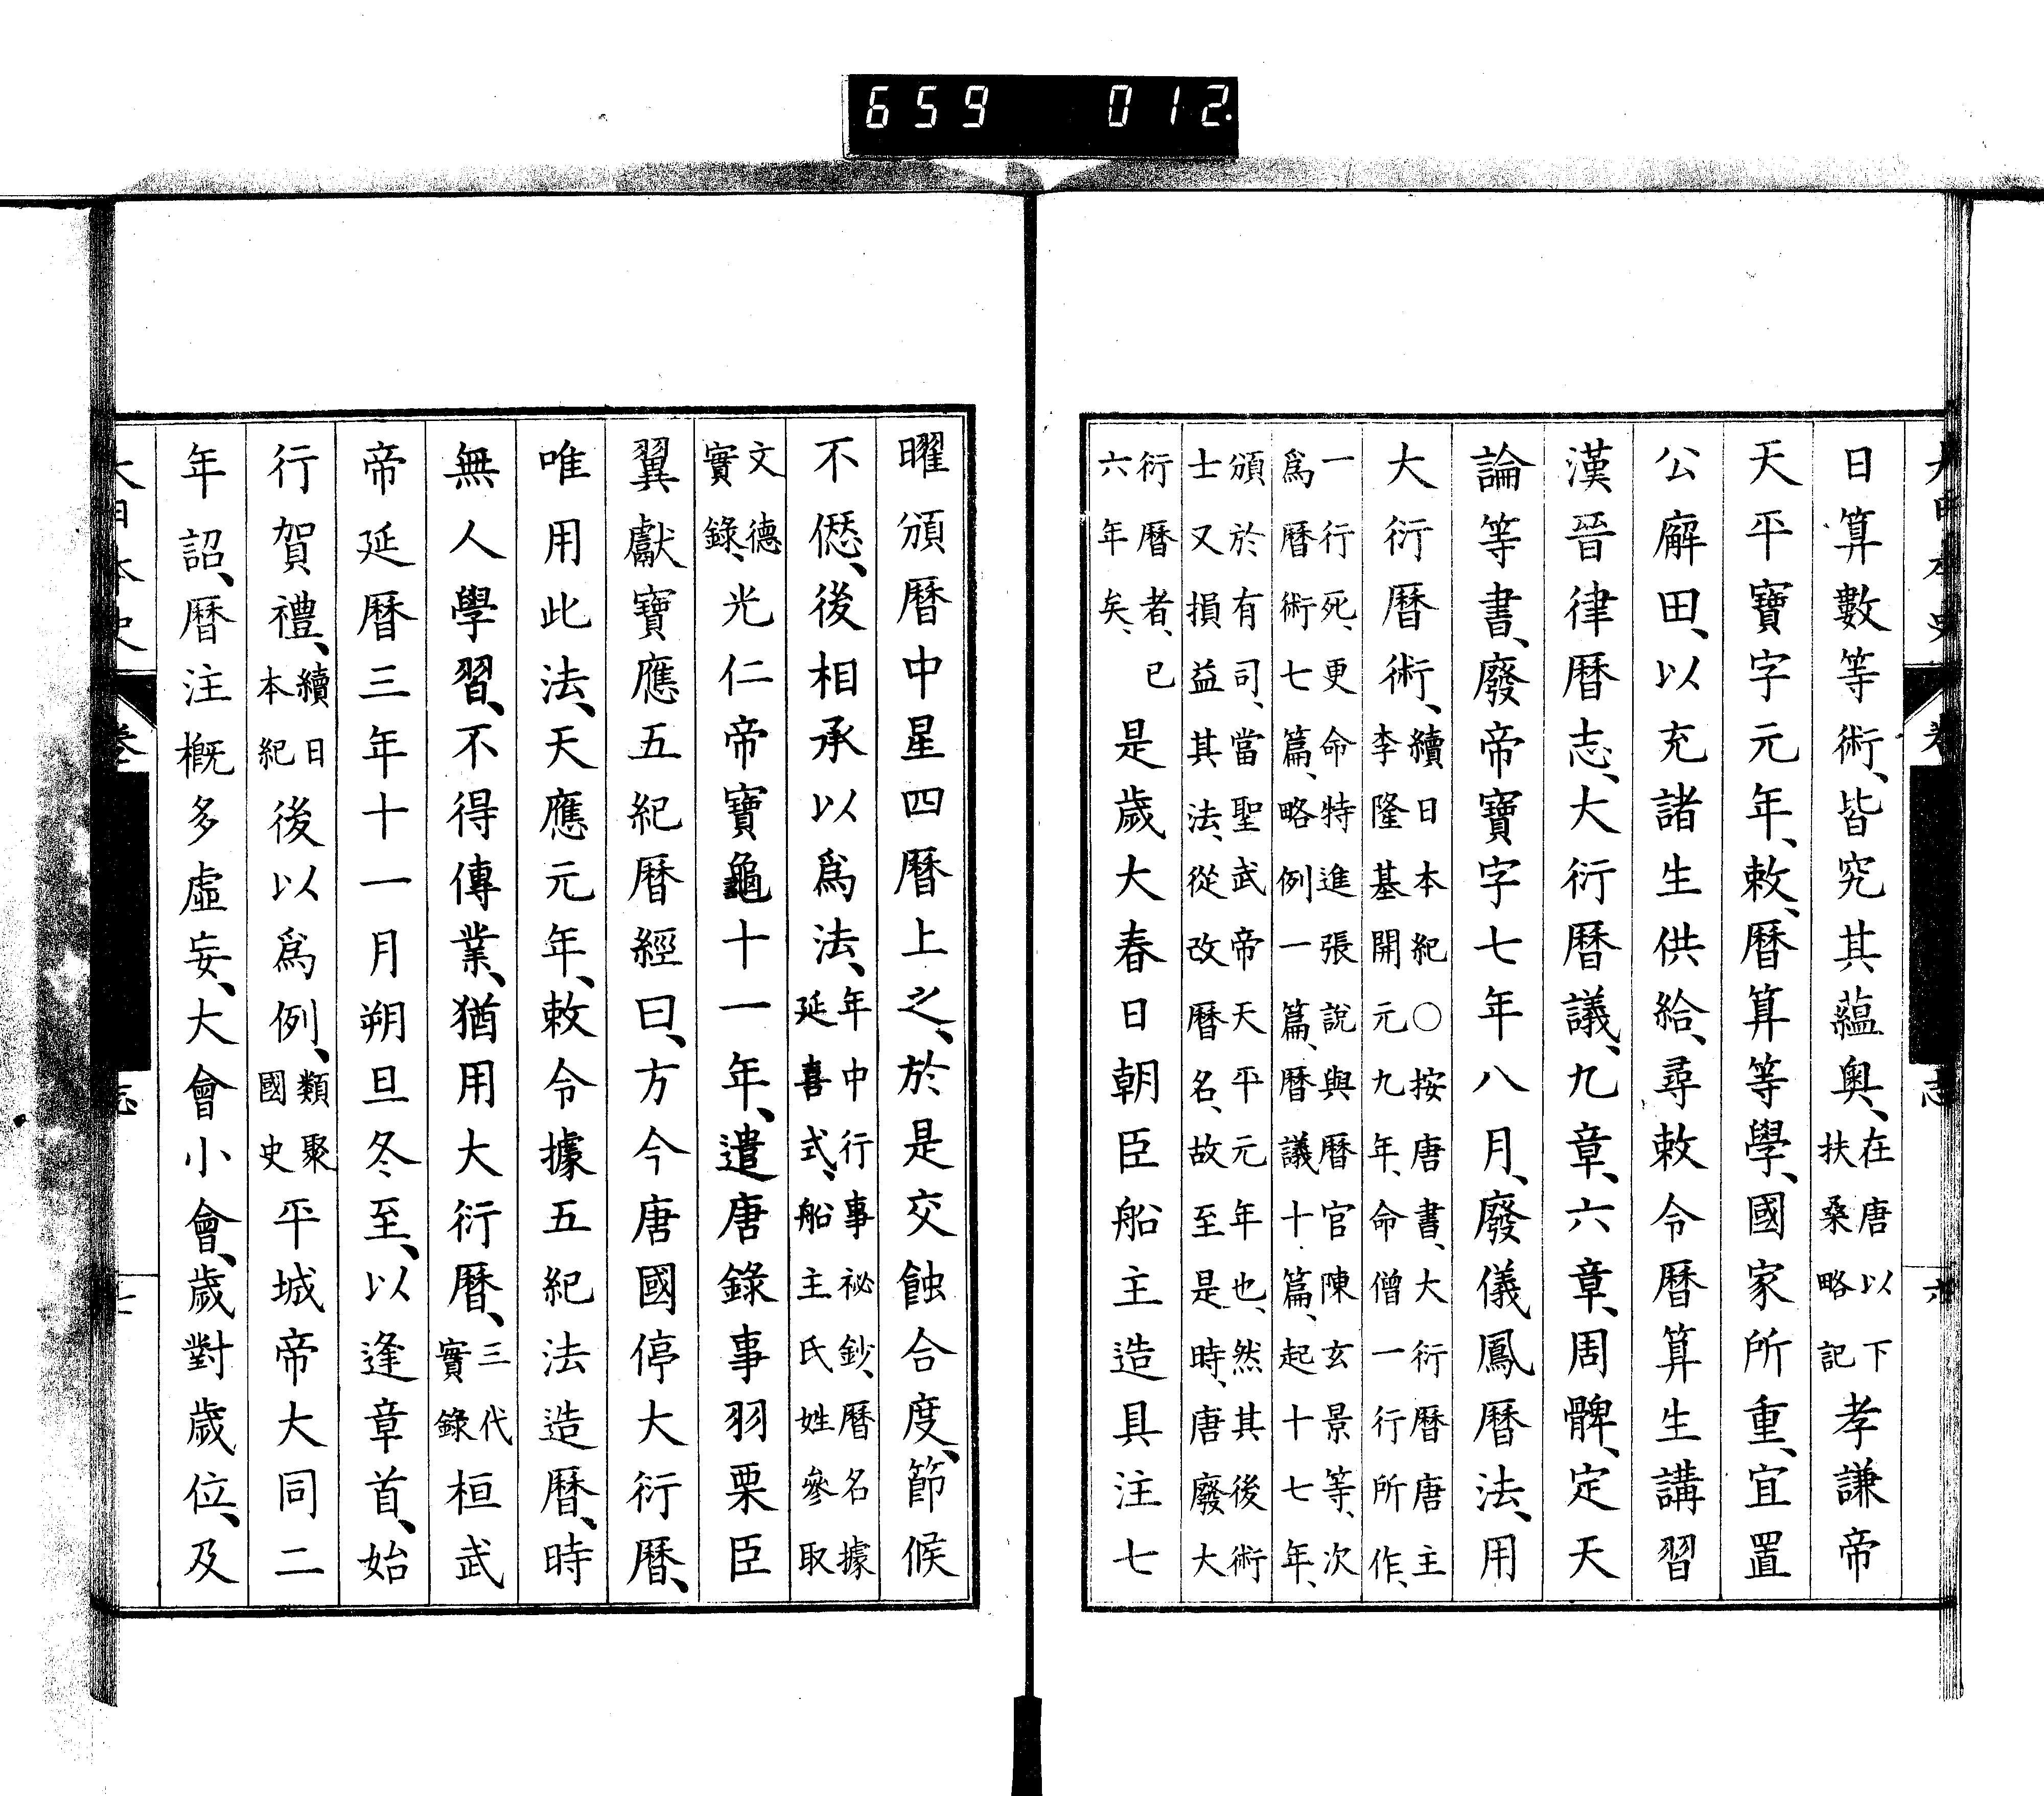 659 012
日算數等術、皆究其蘊奧、在唐以下扶桑略記孝謙帝
天平寶字元年、敕、曆算等學、國家所重、宜置
公廨田、以充諸生供給、尋敕令曆算生講習
漢晉律曆志、大衍曆議、九章、六章、周髀、定天
論等書、廢帝寶字七年八月、廢儀鳳曆法、用
大衍曆術、續日本紀○按唐書、大衍曆唐主李隆基開元九年、命僧一行所作、
一行死、更命特進張說與曆官陳玄景等、次爲曆術七篇、略例一篇、曆議十篇、起十七年、
頒於有司、當聖武帝天平元年也、然其後術士又損益其法、從改曆名、故至是時、唐廢大
衍曆者、已六年矣、是歲大春日朝臣船主造具注七
曜頒曆中星四曆上之、於是交蝕合度、節候
不愆、後相承以爲法、年中行事祕鈔、曆名據延喜式、船主氏姓參取
文德實錄、光仁帝寶龜十一年、遣唐錄事羽栗臣
翼獻寶應五紀曆經曰、方今唐國停大衍曆、
唯用此法、天應元年、敕令據五紀法造曆、時
無人學習、不得傳業、猶用大衍曆、三代實錄桓武
帝延曆三年十一月朔旦冬至、以逢章首、始
行賀禮、續日本紀後以爲例、類聚國史平城帝大同二
年詔、曆注概多虛妄、大會小會、歲對歲位、及